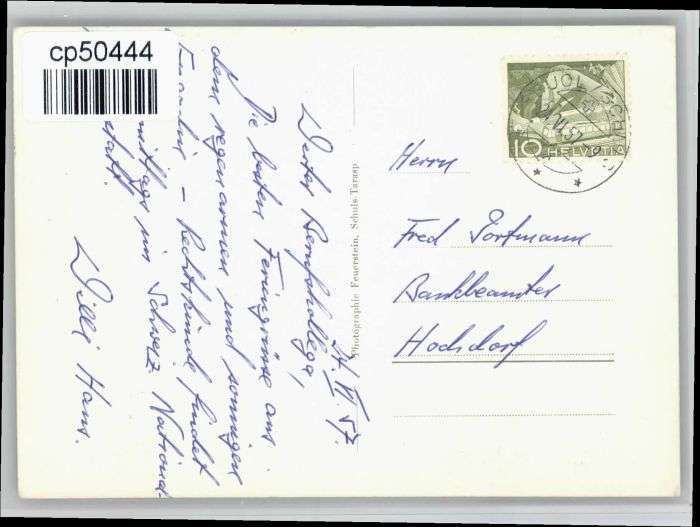 cp50444
24. VI. 57.
Werter Berufskollege,
Die besten Feriengrüsse aus
dem regenarmen und sonnigen
– Rechtskunde findet
mittags im Schweiz. National-
statt!
Willi Hans.
Photographie Feuerstein, Schuls-Tarasp
10 HELVETIA
Herrn
Fred Portmann
Bankbeamter
Hochdorf